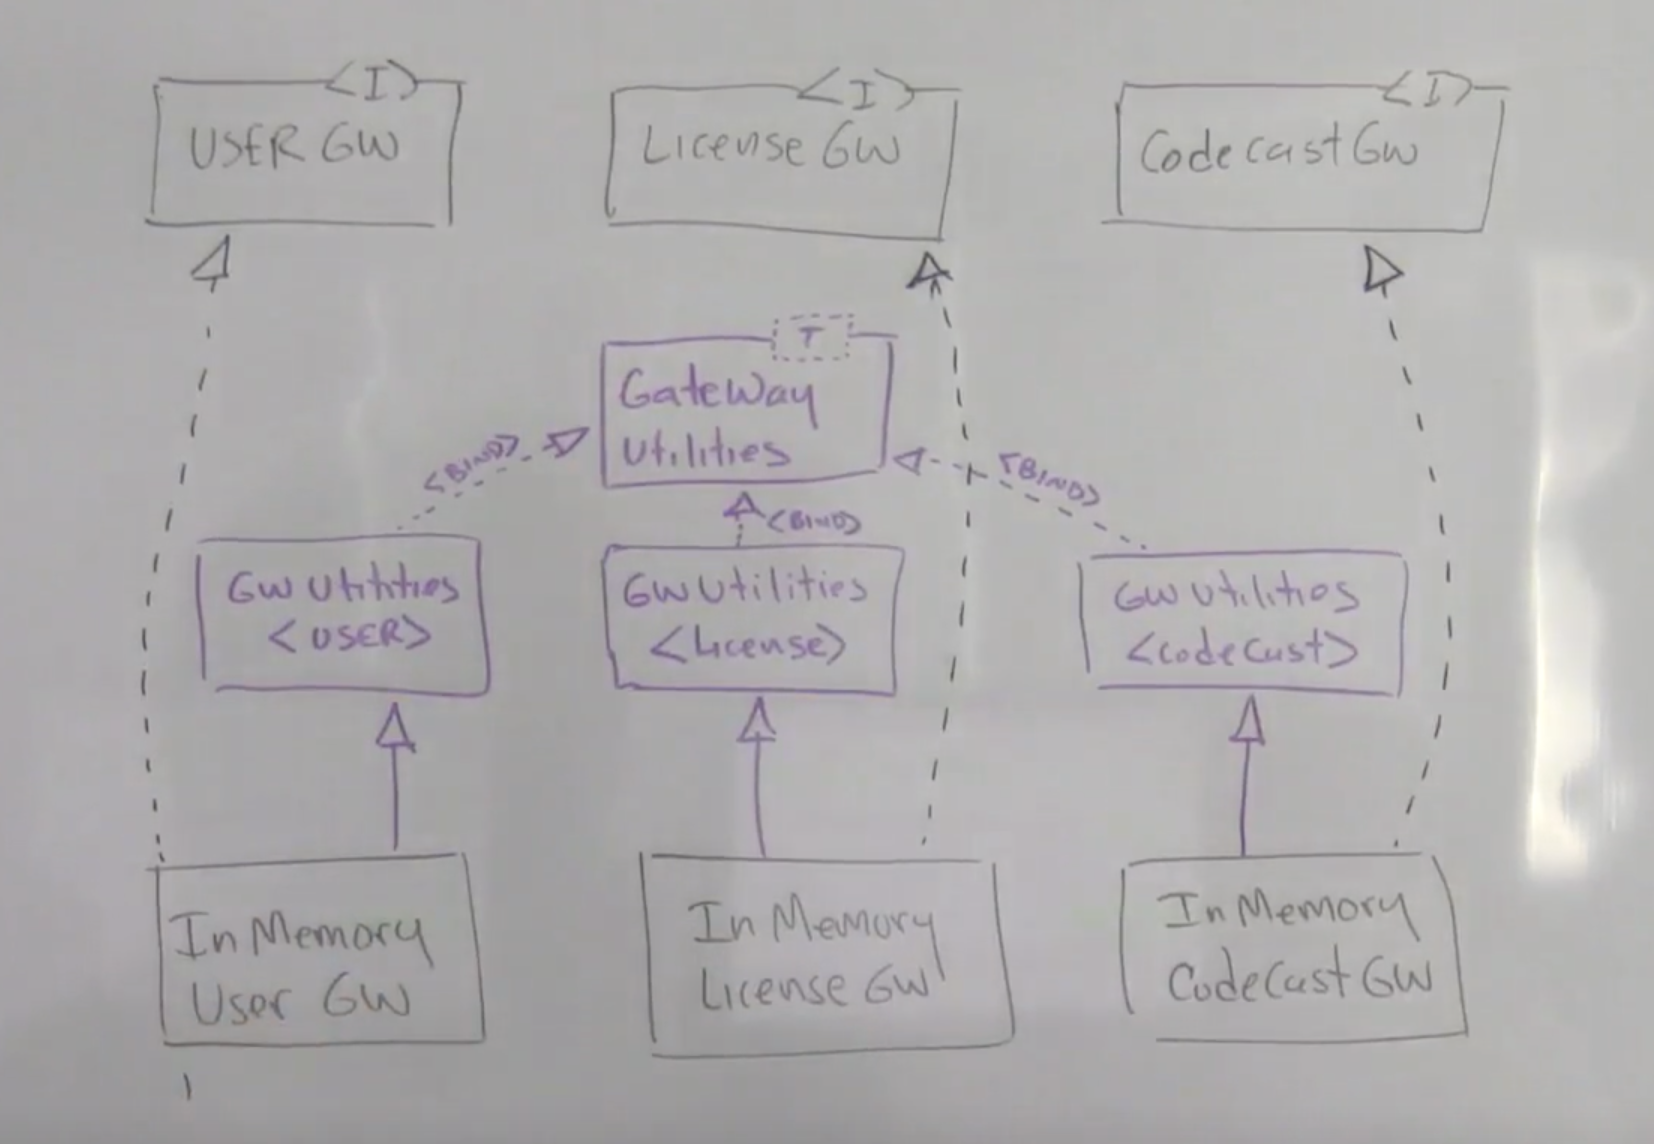 <I>
USER GW
<I>
License GW
<I>
Codecast GW
T
GateWay
Utilities
<BIND>
<BIND>
<BIND>
GW Utilities
<USER>
GW Utilities
<License>
GW Utilities
<codeCast>
In Memory
User GW
In Memory
License GW
In Memory
CodeCast GW